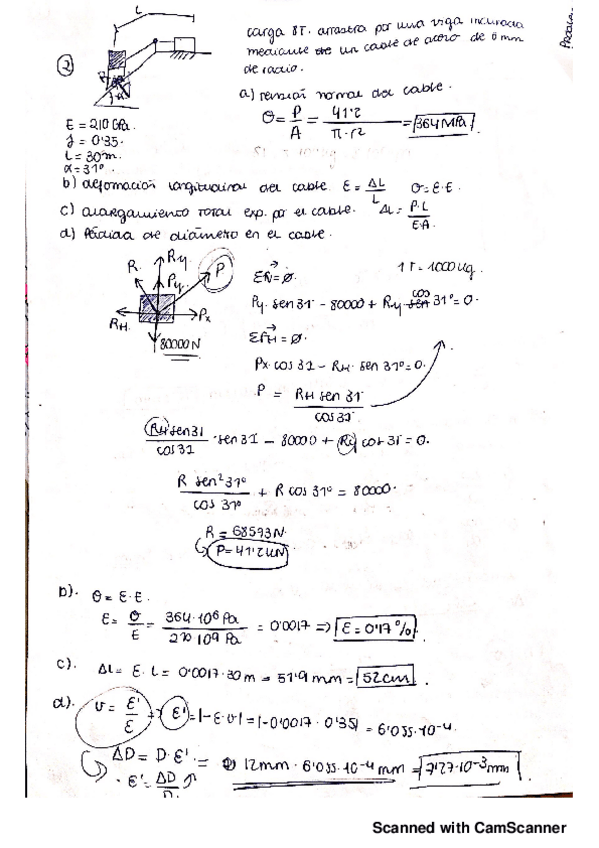 carga 8T. arrastra por una viga inclinada
mediante de un cable de acero de 6 mm
de radio.
2
L
a) tensión normal del cable.
σ = P/A = 41'2/π·r2 = 364 MPa
E = 210 GPa.
J = 0'35.
L = 30 m.
α = 31º
b) deformación longitudinal del cable. ε = ΔL/L σ = E·ε.
c) alargamiento total exp. por el cable. ΔL = P·L/E·A.
d) Pérdida de diámetro en el cable.
R Ry Py P
RH Px
80000 N
ΣFV = 0. 1 T = 1000 kg.
Py. sen 31º - 80000 + Ry cos 31º = 0.
ΣFH = 0.
Px cos 31 - RH. sen 31º = 0.
P = RH sen 31º/cos 31º
RH sen 31/cos 31 · sen 31 - 80000 + Ry cos 31º = 0.
R sen² 31º/cos 31º + R cos 31º = 80000.
R = 68593 N.
P = 41'2 kN
b). σ = E·ε.
ε = σ/E = 364·10⁶ Pa/210·10⁹ Pa = 0'0017 => ε = 0'17 %.
c). ΔL = ε·L = 0'0017·30 m = 51'9 mm = 52 cm.
d). υ = ε'/ε => ε' = |-ε·υ| = |-0'0017·0'35| = 6'055·10⁻⁴.
ΔD = D·ε' = 12 mm · 6'055·10⁻⁴ mm = 7'27·10⁻³ mm.
ε' = ΔD/D
Scanned with CamScanner